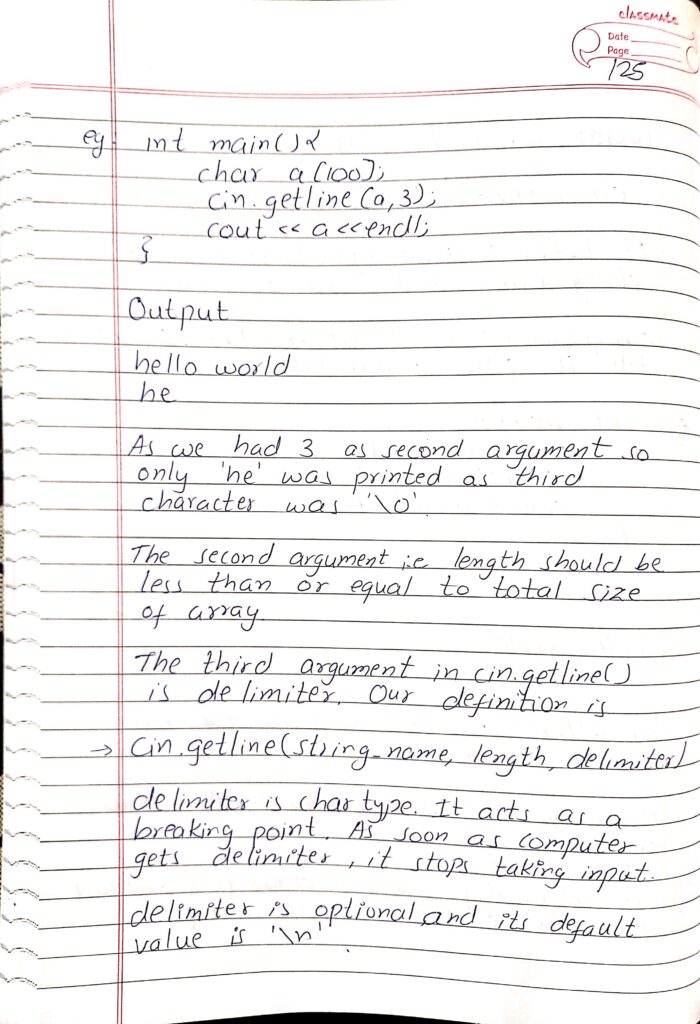 classmate
Date
Page
125
eg. int main(){
char a[100];
cin.getline(a,3);
cout << a<<endl;
}
Output
hello world
he
As we had 3 as second argument so
only 'he' was printed as third
character was '\0'.
The second argument i.e length should be
less than or equal to total size
of array.
The third argument in cin.getline()
is delimiter. Our definition is
→ cin.getline(string_name, length, delimiter)
delimiter is char type. It acts as a
breaking point. As soon as computer
gets delimiter, it stops taking input.
delimiter is optional and its default
value is '\n'.